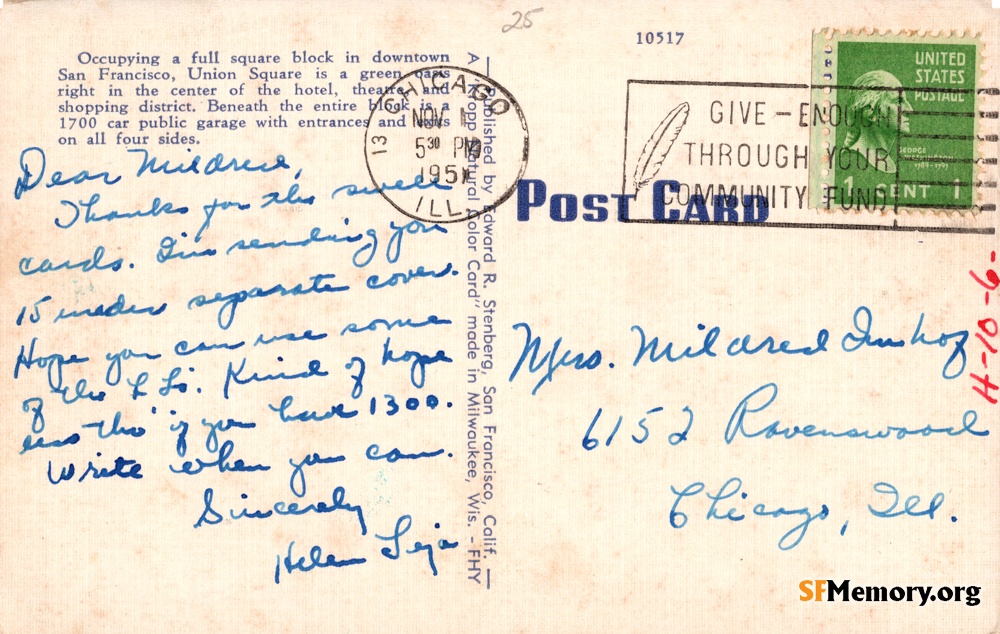 25
10517
Occupying a full square block in downtown
San Francisco, Union Square is a green oasis
right in the center of the hotel, theatre and
shopping district. Beneath the entire block is a
1700 car public garage with entrances and exits
on all four sides.
Dear Mildred,
Thanks for the swell
cards. I'm sending you
15 under separate cover.
Hope you can use some
of the L Ls'. Kind of hope
less tho' if you have 1300.
Write when you can.
Sincerely
Helen
Published by Edward R. Stenberg, San Francisco, Calif. —
A "Kropp Natural Color Card" made in Milwaukee, Wis. - FHY
CHICAGO
13
NOV 1
5 30 PM
1951
ILL.
GIVE - ENOUGH
THROUGH YOUR
COMMUNITY FUND
UNITED
STATES
POSTAGE
GEORGE
WASHINGTON
1789-1797
1 CENT 1
POST CARD
Mrs. Mildred Imhof
6152 Ravenswood
Chicago, Ill.
H-10-6-
SFMemory.org